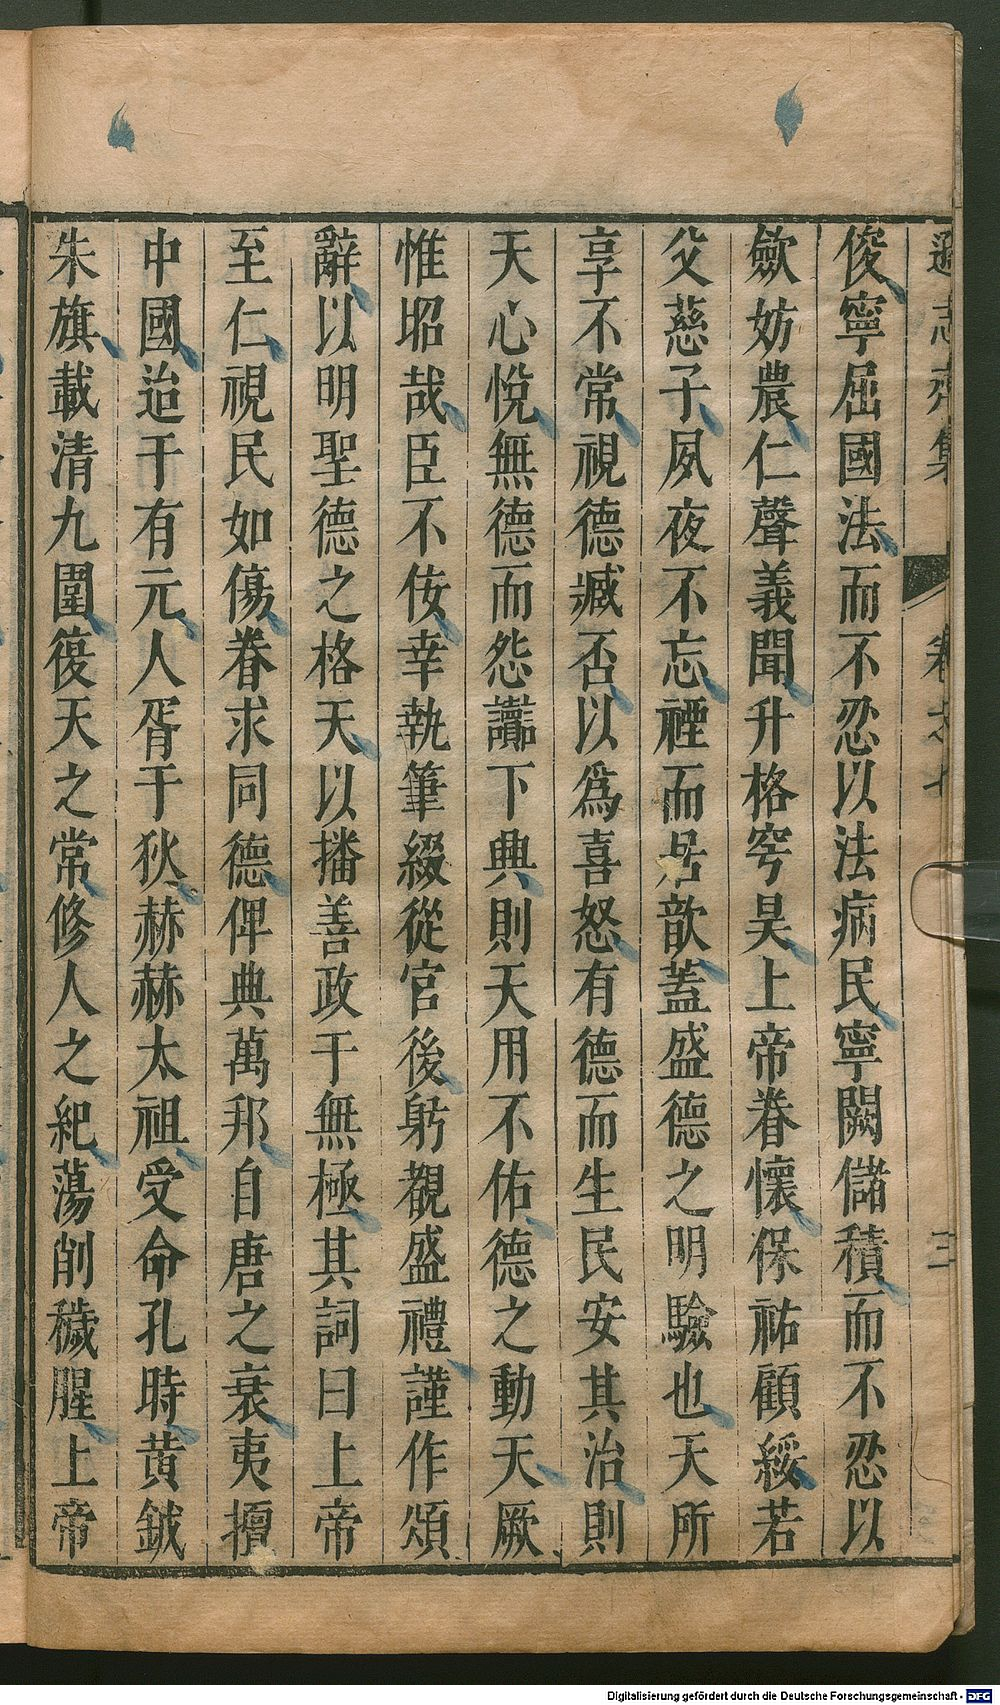 遜志齋集 卷之七 三
俊寧屈國法而不忍以法病民寧闕儲積而不忍以
歛妨農仁聲義聞升格穹昊上帝眷懷保祐顧綏若
父慈子夙夜不忘禋而居歆蓋盛德之明驗也天所
享不常視德臧否以為喜怒有德而生民安其治則
天心悅無德而怨讟下興則天用不佑德之動天厥
惟昭哉臣不佞幸執筆綴從官後躬覩盛禮謹作頌
辭以明聖德之格天以播善政于無極其詞曰上帝
至仁視民如傷眷求同德俾典萬邦自唐之衰夷擅
中國迨于有元人胥于狄赫赫太祖受命孔時黃鉞
朱旗載清九圍復天之常修人之紀蕩削穢腥上帝
Digitalisierung gefördert durch die Deutsche Forschungsgemeinschaft - DFG